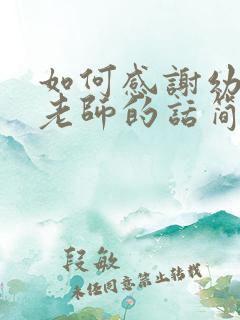 如何感謝幼
老師的話簡
段敏
未經同意禁止轉載